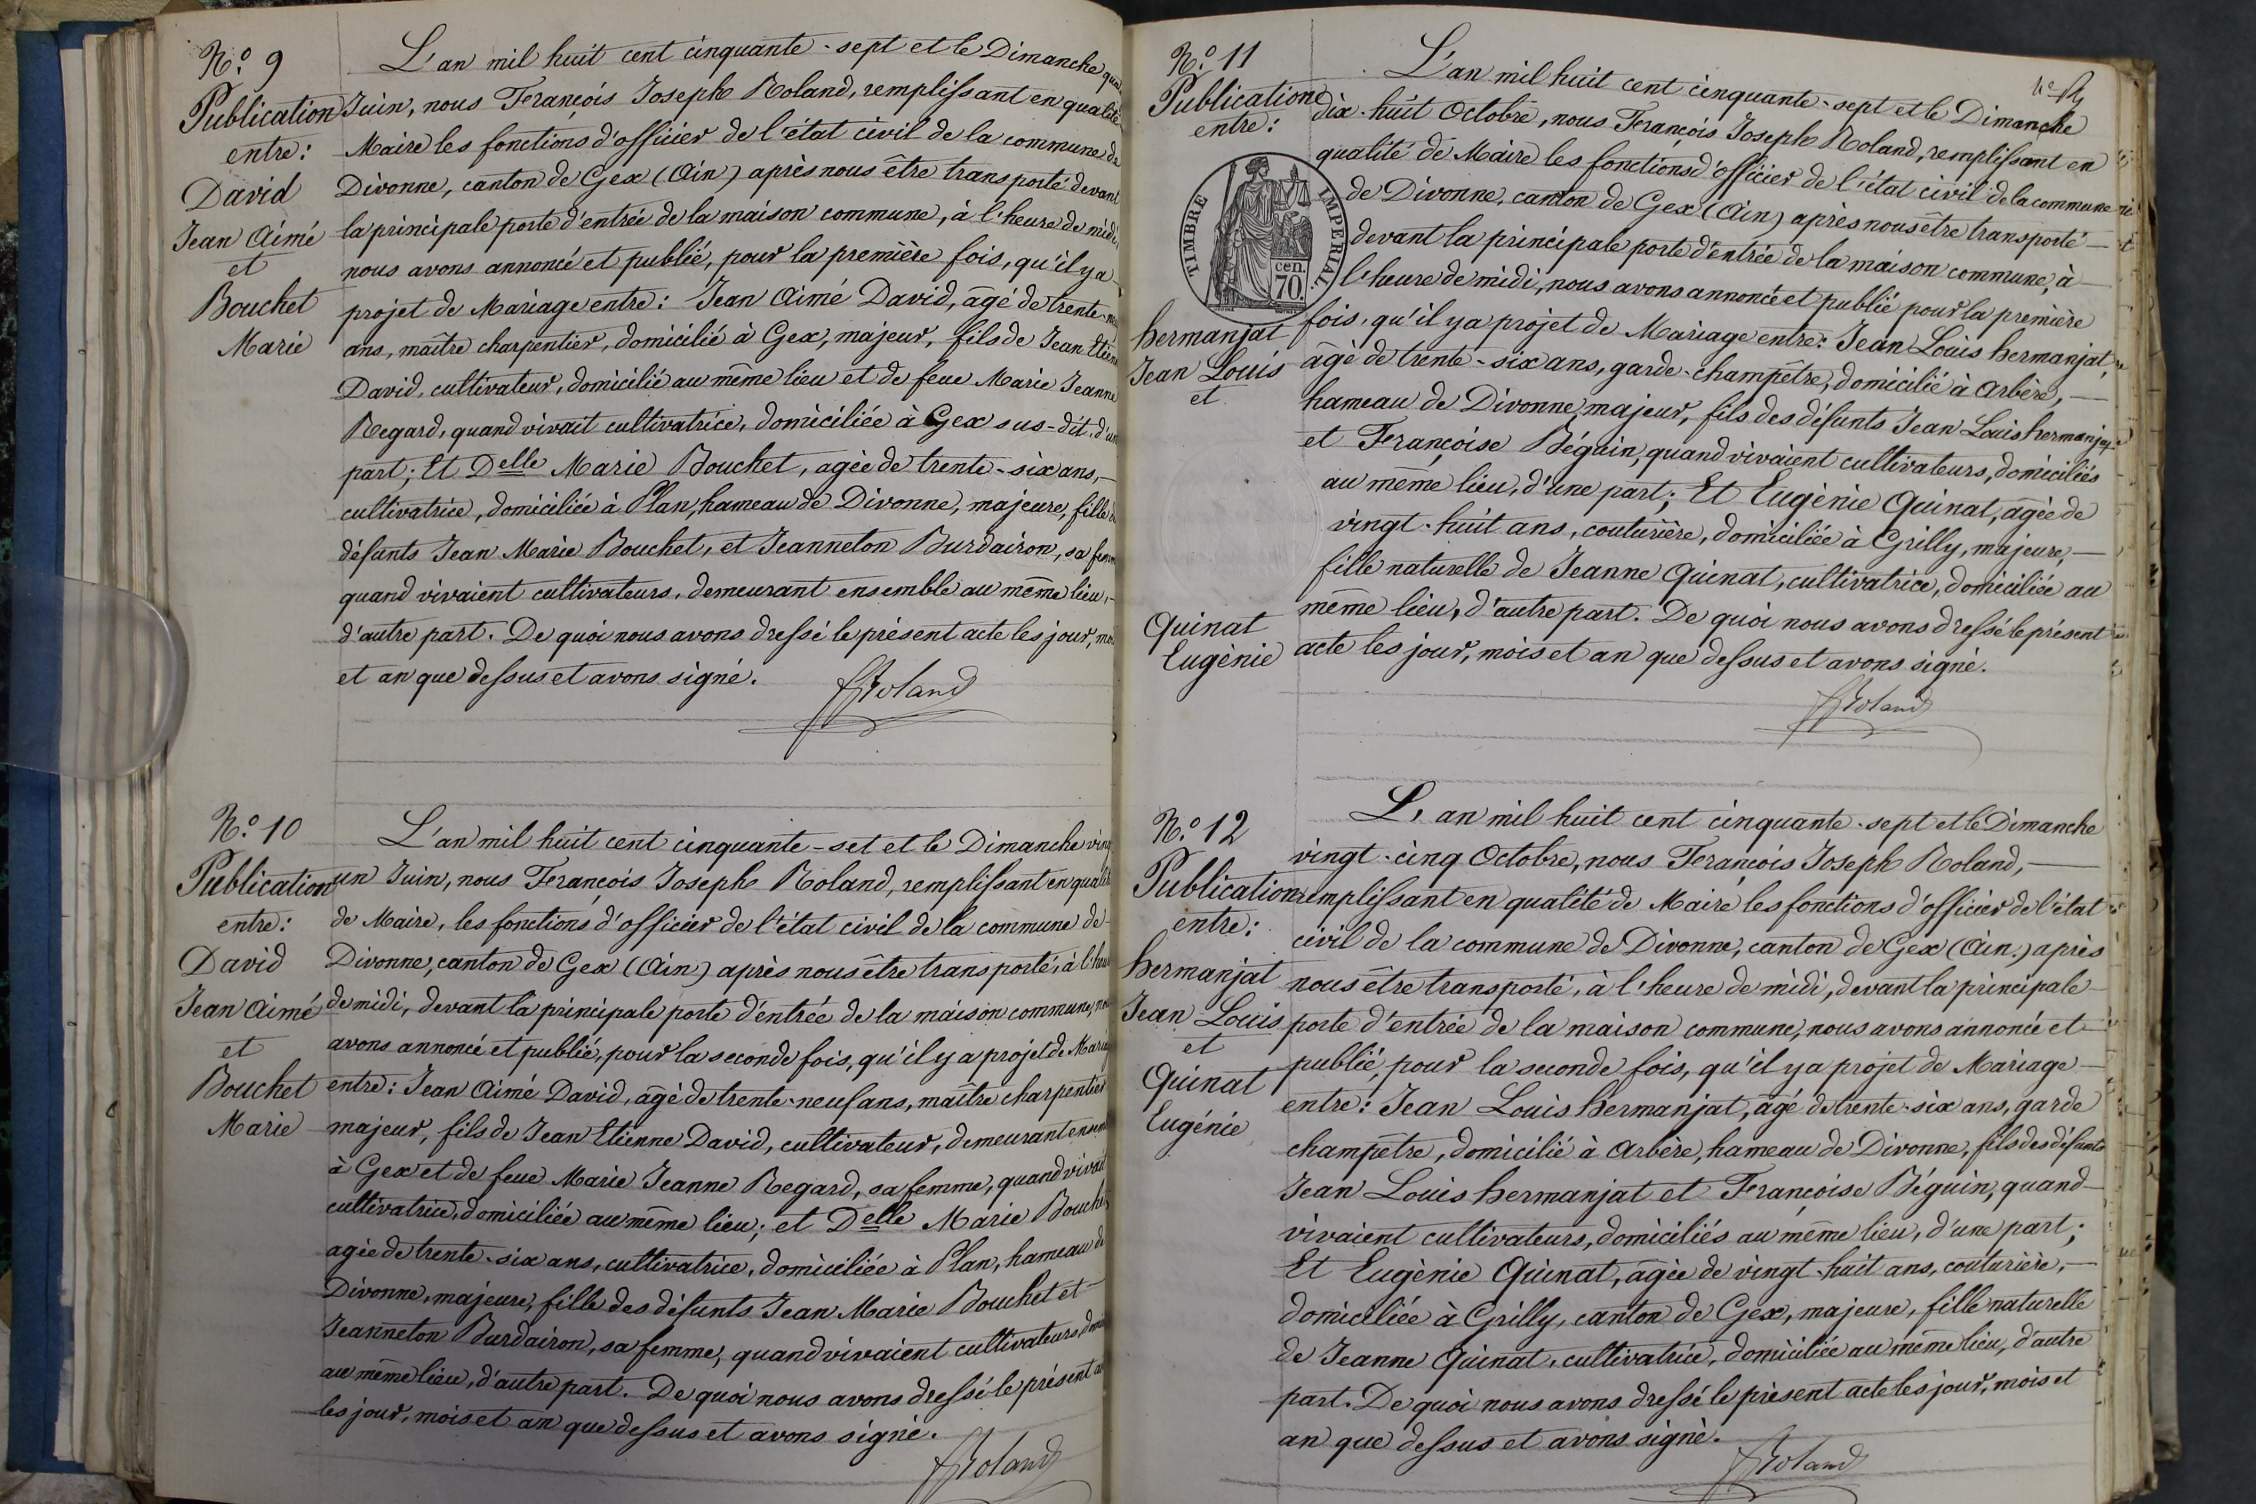 N.º 9
Publication
entre:
David
Jean Aimé
et
Bouchet
Marie
L'an mil huit cent cinquante-sept et le Dimanche
Juin, nous François Joseph Roland, remplissant en qualité
Maire les fonctions d'officier de l'état civil de la commune de
Divonne, canton de Gex (Ain) après nous être transporté devant
la principale porte d'entrée de la maison commune, à l'heure de midi,
nous avons annoncé et publié, pour la première fois, qu'il y a
projet de Mariage entre: Jean Aimé David, âgé de trente-
ans, maître charpentier, domicilié à Gex, majeur, fils de Jean Etienne
David, cultivateur, domicilié au même lieu et de feue Marie Jeanne
Regard, quand vivait cultivatrice, domiciliée à Gex sus-dit, d'une
part; Et Delle Marie Bouchet, agée de trente-six ans,
cultivatrice, domiciliée à Plan, hameau de Divonne, majeure, fille
défunts Jean Marie Bouchet, et Jeanneton Burdairon, sa femme
quand vivaient cultivateurs, demeurant ensemble au même lieu,
d'autre part. De quoi nous avons dressé le présent acte les jour, mois
et an que dessus et avons signé.
FJRoland
N.º 10
Publication
entre:
David
Jean Aimé
et
Bouchet
Marie
L'an mil huit cent cinquante-set et le Dimanche vingt
un Juin, nous François Joseph Roland, remplissant en qualité
de Maire, les fonctions d'officier de l'état civil de la commune de
Divonne, canton de Gex (Ain) après nous être transporté, à l'heure
de midi, devant la principale porte d'entrée de la maison commune, nous
avons annoncé et publié, pour la seconde fois, qu'il y a projet de Mariage
entre: Jean Aimé David, âgé de trente-neuf ans, maître charpentier
majeur, fils de Jean Etienne David, cultivateur, demeurant ensemble
à Gex et de feue Marie Jeanne Regard, sa femme, quand vivait
cultivatrice, domiciliée au même lieu; et Delle Marie Bouchet
agée de trente-six ans, cultivatrice, domiciliée à Plan, hameau de
Divonne, majeure, fille des défunts Jean Marie Bouchet et
Jeanneton Burdairon, sa femme, quand vivaient cultivateurs,
au même lieu, d'autre part. De quoi nous avons dressé le présent
les jour, mois et an que dessus et avons signé.
FJRoland
N.º 11
Publication
entre:
TIMBRE IMPERIAL.
cen.
70.
hermanjat
Jean Louis
et
Quinat
Eugènie
L'an mil huit cent cinquante-sept et le Dimanche
dix-huit Octobre, nous François Joseph Roland, remplissant en
qualité de Maire les fonctions d'officier de l'état civil de la commune
de Divonne, canton de Gex (Ain) après nous être transporté
devant la principale porte d'entrée de la maison commune, à
l'heure de midi, nous avons annoncé et publié pour la première
fois, qu'il y a projet de Mariage entre: Jean Louis hermanjat,
âgé de trente-six ans, garde-champêtre, domicilié à Arbère,
hameau de Divonne, majeur, fils des défunts Jean Louis hermanjat
et Françoise Béguin, quand vivaient cultivateurs, domiciliés
au même lieu, d'une part; Et Eugènie Quinat, âgée de
vingt-huit ans, couturière, domiciliée à Grilly, majeure,
fille naturelle de Jeanne Quinat, cultivatrice, domiciliée au
même lieu, d'autre part. De quoi nous avons dressé le présent
acte les jour, mois et an que dessus et avons signé.
FJRoland
N.º 12
Publication
entre:
hermanjat
Jean Louis
et
Quinat
Eugénie
L'an mil huit cent cinquante-sept et le Dimanche
vingt-cinq Octobre, nous François Joseph Roland,
remplissant en qualité de Maire les fonctions d'officier de l'état
civil de la commune de Divonne, canton de Gex (Ain.) après
nous être transporté, à l'heure de midi, devant la principale
porte d'entrée de la maison commune, nous avons annoncé et
publié, pour la seconde fois, qu'il y a projet de Mariage
entre: Jean Louis hermanjat, âgé de trente-six ans, garde
champêtre, domicilié à Arbère, hameau de Divonne, fils des défunts
Jean Louis hermanjat et Françoise Béguin, quand
vivaient cultivateurs, domiciliés au même lieu, d'une part;
Et Eugènie Quinat, âgée de vingt-huit ans, couturière,
domiciliée à Grilly, canton de Gex, majeure, fille naturelle
de Jeanne Quinat, cultivatrice, domiciliée au même lieu, d'autre
part. De quoi nous avons dressé le présent acte les jour, mois et
an que dessus et avons signé.
FJRoland